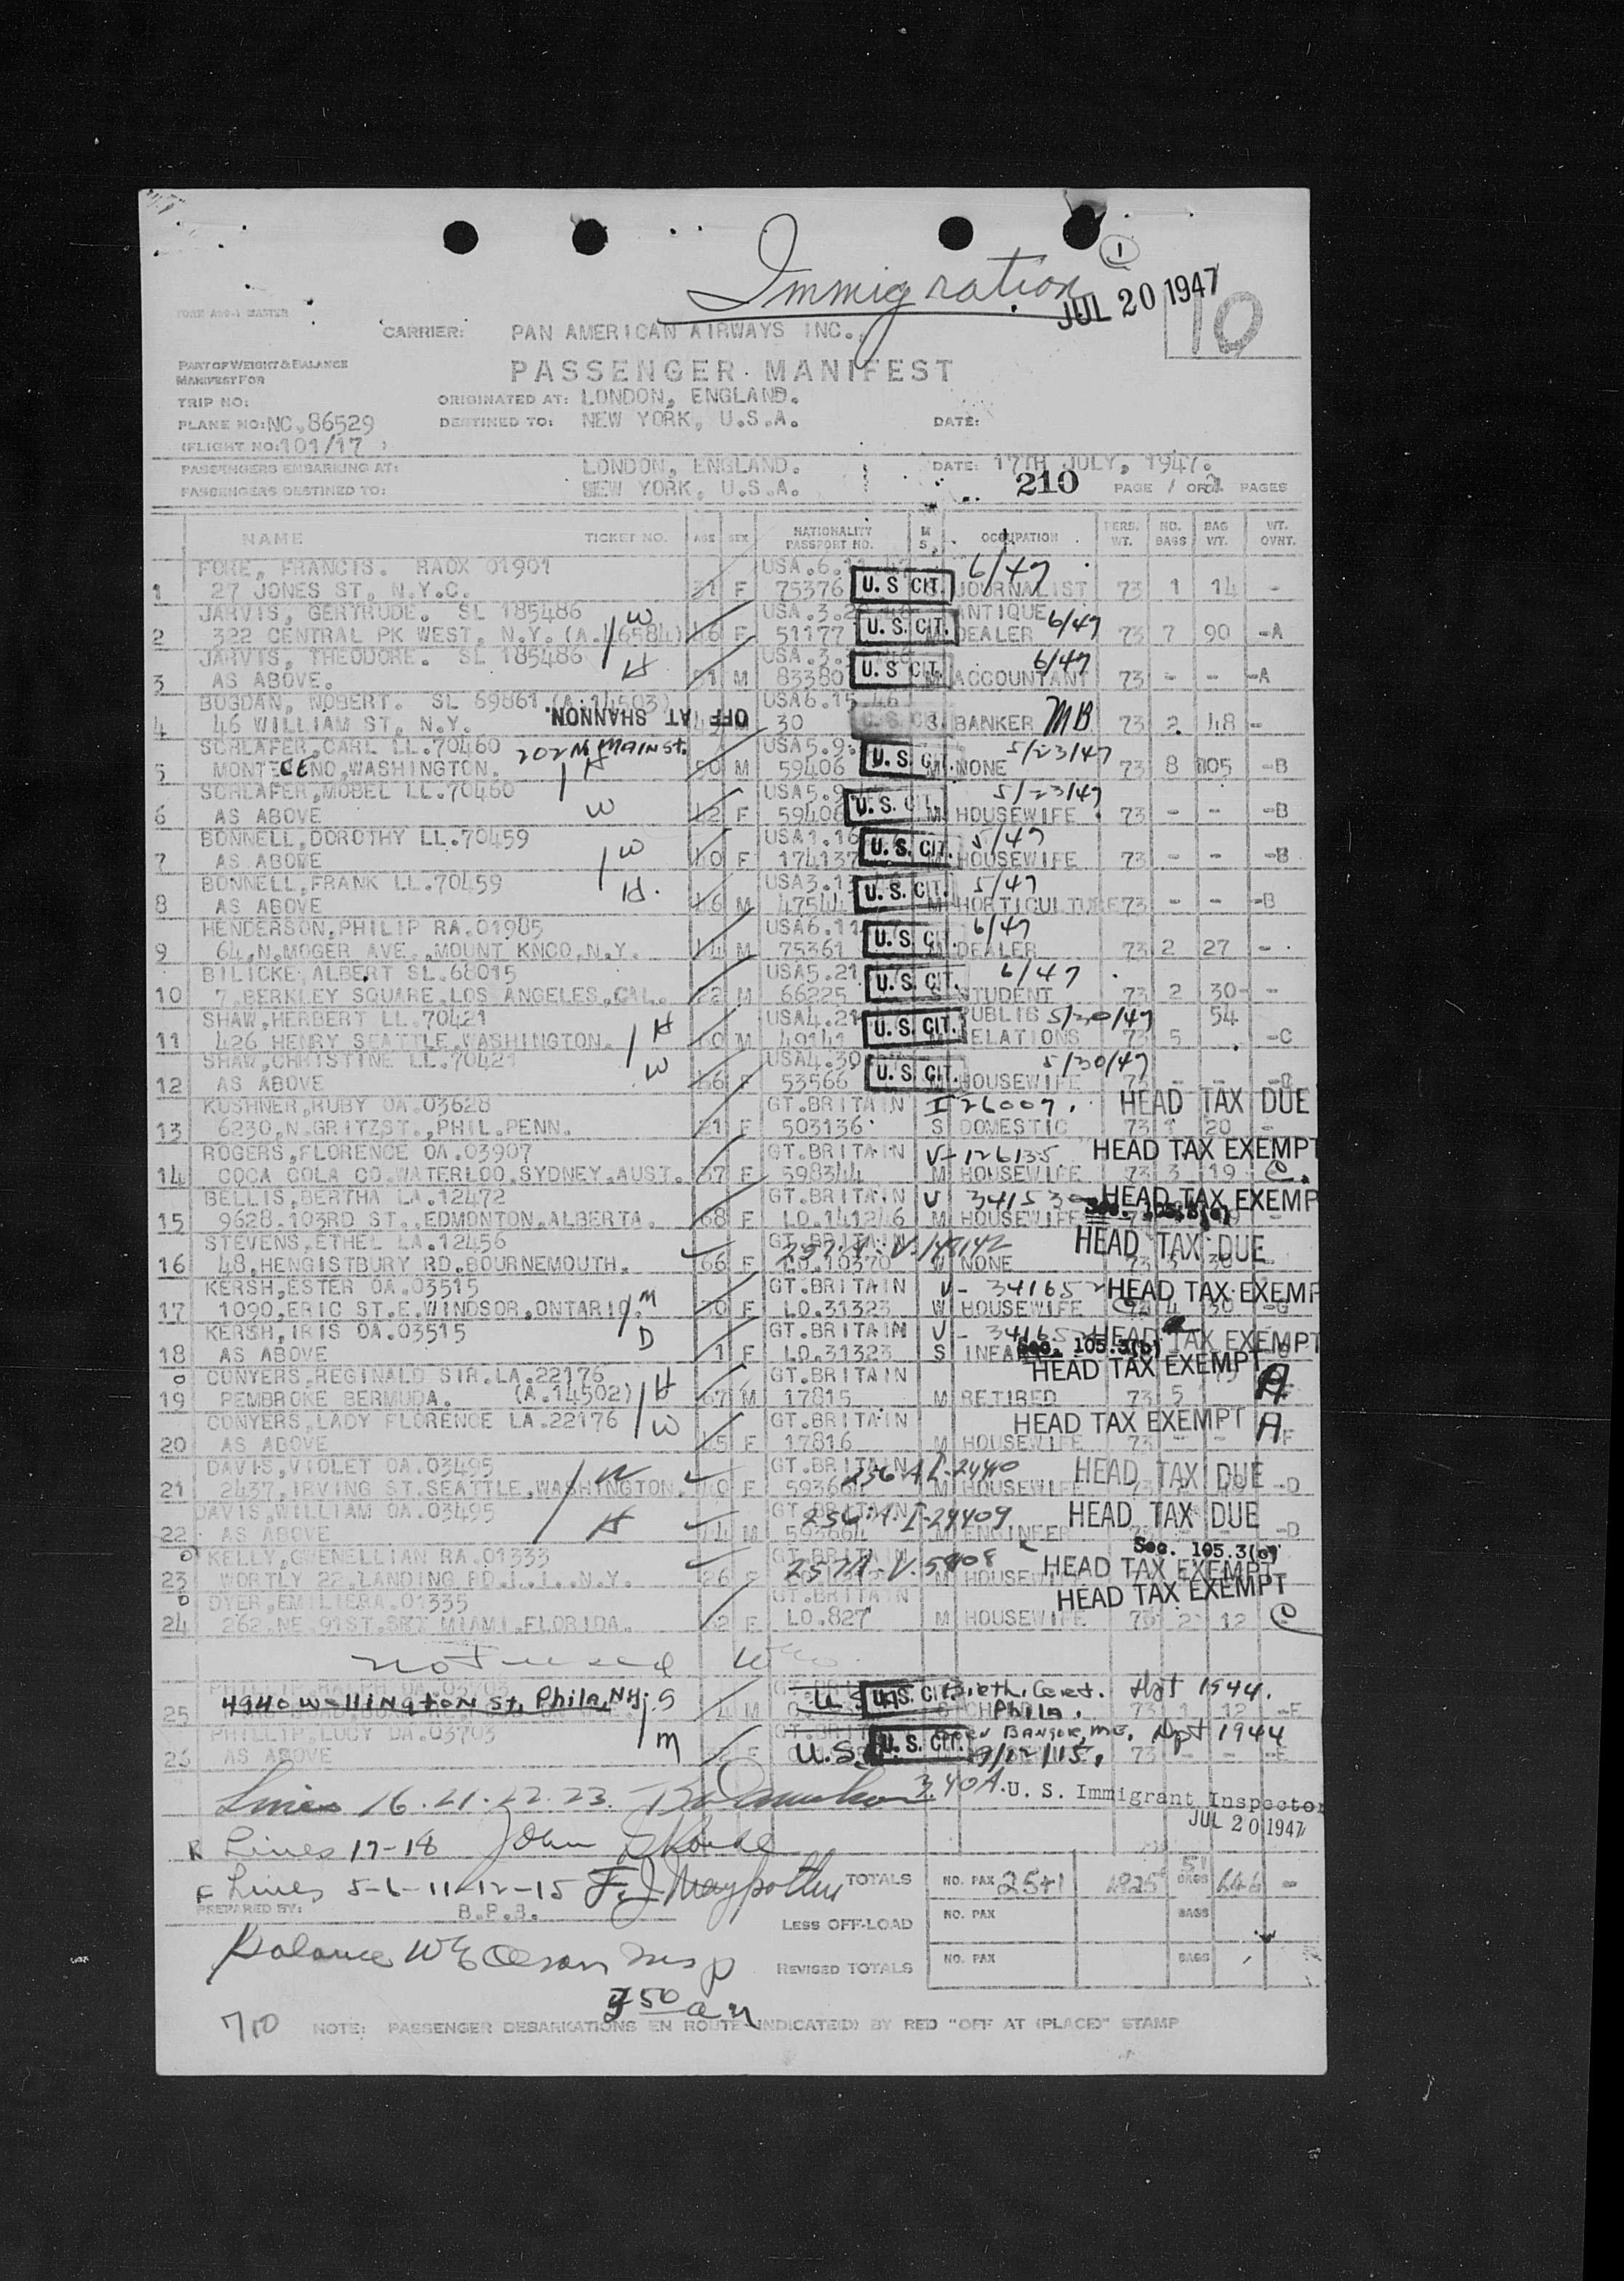 Immigration
1
JUL 20 1947
10
FORM A09-1 MASTER
CARRIER: PAN AMERICAN AIRWAYS INC.,
PART OF WEIGHT & BALANCE
MANIFEST FOR
PASSENGER MANIFEST
TRIP NO:
ORIGINATED AT: LONDON, ENGLAND.
PLANE NO: NC.86529
DESTINED TO: NEW YORK, U.S.A.
DATE:
(FLIGHT NO: 101/17 )
PASSENGERS EMBARKING AT: LONDON, ENGLAND. DATE: 17TH JULY, 1947.
PASSENGERS DESTINED TO: NEW YORK, U.S.A. 210 PAGE 1 OF 2 PAGES
NAME TICKET NO. AGE SEX NATIONALITY PASSPORT NO. M S. OCCUPATION PERS. WT. NO. BAGS BAG WT. WT. OVHT.
FOKE, FRANCIS. RAOX 01901 USA.6. 6/47
1 27 JONES ST, N.Y.C. 31 F 75376 U. S CIT. JOURNALIST 73 1 14 -
JARVIS, GERTRUDE. SL 185486 W USA.3.2 ANTIQUE
2 322 CENTRAL PK WEST, N.Y. (A.46584) 46 F 51177 U. S. CIT. DEALER 6/47 73 7 90 -A
JARVIS, THEODORE. SL 185486 USA.3. 6/47
3 AS ABOVE. H 51 M 83380 U. S CIT. M ACCOUNTANT 73 - - -A
BOGDAN, NOBERT. SL 69861 (A.14503) USA6.15.46
4 46 WILLIAM ST, N.Y. OFF AT SHANNON. 30 U. S. CIT. BANKER MB 73 2 48 -
SCHLAFER, CARL LL.70460 202 N MAIN St. USA5.9 5/23/47
5 MONTECENO, WASHINGTON. H 50 M 59406 U. S. CIT. M NONE 73 8 105 -B
SCHLAFER, MOBEL LL.70460 USA5.9 5/23/47
6 AS ABOVE W 42 F 59406 U. S. CIT. M HOUSEWIFE 73 - - -B
BONNELL, DOROTHY LL.70459 W USA1.16 5/47
7 AS ABOVE 40 F 174137 U. S. CIT. HOUSEWIFE 73 - - -B
BONNELL, FRANK LL.70459 H. USA3.1 5/47
8 AS ABOVE 46 M 47544 U. S. CIT. M HORTICULTURE 73 - - -B
HENDERSON, PHILIP RA.01985 USA6.11 6/47
9 64, N. MOGER AVE., MOUNT KNCO, N.Y. 44 M 75361 U. S. CIT. DEALER 73 2 27 -
BILICKE, ALBERT SL.68015 USA5.21 6/47
10 7. BERKLEY SQUARE, LOS ANGELES, CAL. 22 M 66225 U. S. CIT. STUDENT 73 2 30 -
SHAW, HERBERT LL.70421 H USA4.21 PUBLIS 5/30/47 54
11 426 HENRY SEATTLE, WASHINGTON. 60 M 49141 U. S. CIT. RELATIONS 73 5 -C
SHAW, CHRISTINE LL.70421 W USA4.30 5/30/47
12 AS ABOVE 56 F 53566 U. S. CIT. HOUSEWIFE 73
KUSHNER, RUBY OA.03628 GT.BRITAIN I 26007. HEAD TAX DUE
13 6230, N. GRITZST., PHIL. PENN. 21 F 503136 S DOMESTIC 73 1 20 -
ROGERS, FLORENCE OA.03907 GT.BRITAIN V-126135 HEAD TAX EXEMPT
14 COCA COLA CO. WATERLOO, SYDNEY, AUST. 37 F 598344 M HOUSEWIFE 73 3 19 C.
BELLIS, BERTHA LA.12472 GT.BRITAIN V 341530 HEAD TAX EXEMP
15 9628.103RD ST., EDMONTON, ALBERTA. 68 F LO.141246 M HOUSEWIFE
STEVENS, ETHEL LA.12456 GT.BRITAIN 257A. V.148142 HEAD TAX DUE
16 48, HENGISTBURY RD. BOURNEMOUTH. 66 F LO.10370 W NONE
KERSH, ESTER OA.03515 GT.BRITAIN V- 341652 HEAD TAX EXEMP
17 1090, ERIC ST. E. WINDSOR, ONTARIO. M 30 F LO.31323 W HOUSEWIFE
KERSH, IRIS OA.03515 D GT.BRITAIN V- 34165 HEAD TAX EXEMPT
18 AS ABOVE 1 F LO.31323 S INFA Sec. 105.3(b) HEAD TAX EXEMPT
CONYERS, REGINALD SIR. LA.22176 H GT.BRITAIN
19 PEMBROKE BERMUDA. (A.14502) 67 M 17815 M RETIRED 73 5 A
CONYERS, LADY FLORENCE LA.22176 W GT.BRITAIN HEAD TAX EXEMPT A
20 AS ABOVE F 17816 M HOUSEWIFE 73 - F
DAVIS, VIOLET OA.03495 W GT.BRITAIN HEAD TAX DUE
21 2437, IRVING ST. SEATTLE, WASHINGTON. 40 F 593664 M HOUSEWIFE -D
DAVIS, WILLIAM OA.03495 H GT.BRITAIN 256.A. I-29409 HEAD TAX DUE
22 AS ABOVE 44 M 593664 M ENGINEER -D
Sec. 105.3(c)
KELLY, GWENELLIAN RA.01333 GT.BRITAIN 257A V.5808 HEAD TAX EXEMPT
23 WORTLY 22, LANDING RD. L.I. N.Y. 26 F M HOUSEWI
HEAD TAX EXEMPT
DYER, EMILIE RA.01335 GT.BRITAIN
24 262 NE. 91ST. MIAMI, FLORIDA. F LO.827 M HOUSEWIFE 73 2 12 C
not used
4940 Wellington St, Phila, S U. S. CIT. Birth. Cert. 1944.
25 4 M Phila. 73 1 12 -F
PHILLIP, LUCY OA.03703 M U. S. CIT. Bangor, ME. Dpt 1944
26 AS ABOVE F U.S. 73 - - -F
Lines 16.21.22.23. 3.40A. U. S. Immigrant Inspector
JUL 20 1947
R Lines 17-18 John
F Lines 5-6-11-12-15 F. J. Maypother TOTALS NO. PAX 25+1 4825 51 BAGS 646 -
PREPARED BY: B.P.B.
LESS OFF-LOAD NO. PAX BAGS
Balance WE Olson Insp REVISED TOTALS NO. PAX BAGS
3 50 am
710 NOTE: PASSENGER DEBARKATIONS EN ROUTE INDICATED BY RED "OFF AT (PLACE)" STAMP